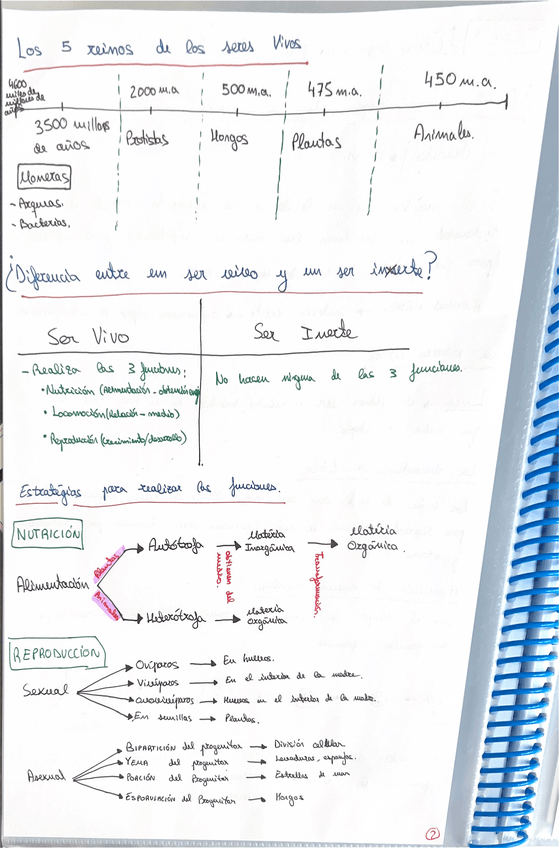 Los 5 reinos de los seres vivos
4600 miles de millones de años
2000 m.a
500 m.a.
475 m.a.
450 m.a.
3500 millones de años
Protistas
Hongos
Plantas
Animales.
Moneras
- Arqueas.
- Bacterias.
¿Diferencia entre em ser vivo y un ser inerte?
Ser Vivo
Ser Inerte
- Realiza las 3 funciones:
• Nutrición (Alimentación - obtención
• Locomoción (Relación - medio)
• Reproducción (crecimiento/desarrollo)
No hacen ninguna de las 3 funciones.
Estratégias para realizar las funciones.
NUTRICIÓN
Alimentación
Plantas
Autótrofa
obtienen del medio.
Matéria Inorgánica
Transformación.
Matéria Orgánica.
Animales
Heterótrofa
Materia orgánica
REPRODUCCIÓN
Sexual
Ovíparos
En huevos.
Vivíparos
En el interior de la madre.
Ovovivíparos
Huevos en el interior de la madre.
En semillas
Plantas.
Asexual
BIPARTICIÓN del progenitor
División celular
YEMA del progenitor
Levaduras, esponjas.
PORCIÓN del Progenitor
Estrellas de mar
ESPORULACIÓN del Progenitor
Hongos
2